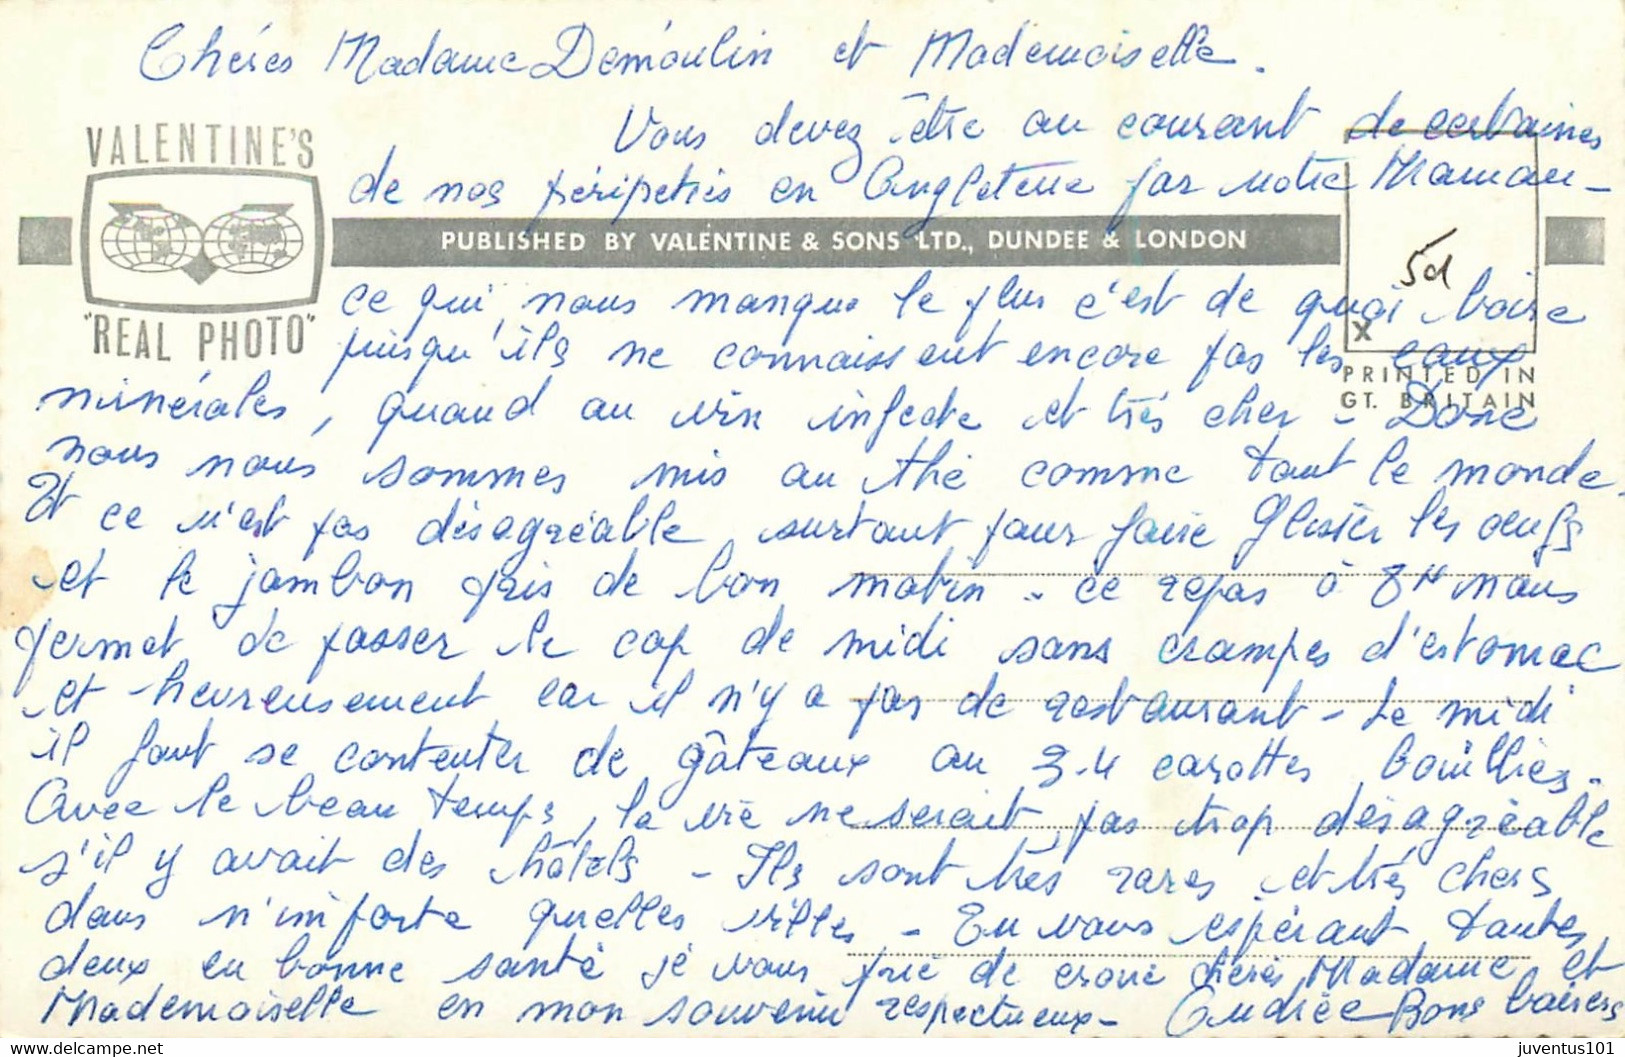 Chères Madame Demoulin et Mademoiselle.
Vous devez être au courant de certaines
de nos péripeties en Angleterre par notre Maman -
VALENTINE'S
"REAL PHOTO"
PUBLISHED BY VALENTINE & SONS LTD., DUNDEE & LONDON
5d
X
PRINTED IN
GT. BRITAIN
ce qui nous manque le plus c'est de quoi boire
puisqu'ils ne connaissent encore pas les eaux
minérales, quand au vin infecte et très cher - Donc
nous nous sommes mis au thé comme tout le monde.
Et ce n'est pas désagréable surtout pour faire glisser les oeufs
et le jambon pris de bon matin - ce repas à 8H nous
permet de passer le cap de midi sans crampes d'estomac
et heureusement car il n'y a pas de restaurant - Le midi
il faut se contenter de gâteaux au 3-4 carottes bouillies.
Avec le beau temps, la vie ne serait pas trop désagréable
s'il y avait des hôtels - Ils sont très rares et très chers
dans n'importe quelles villes - En vous espérant toutes
deux en bonne santé je vous prie de croire chères Madame et
Mademoiselle en mon souvenir respectueux - Andrée Bons baisers
juventus101